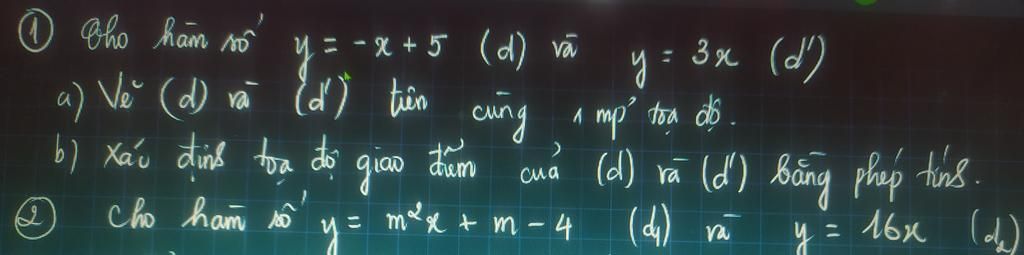 ① Cho hàm số y = -x + 5 (d) và y = 3x (d')
a) Vẽ (d) và (d') trên cùng 1 mp' tọa độ.
b) Xác định tọa độ giao điểm của (d) và (d') bằng phép tính.
② Cho hàm số y = m²x + m - 4 (d₁) và y = 16x (d₂)